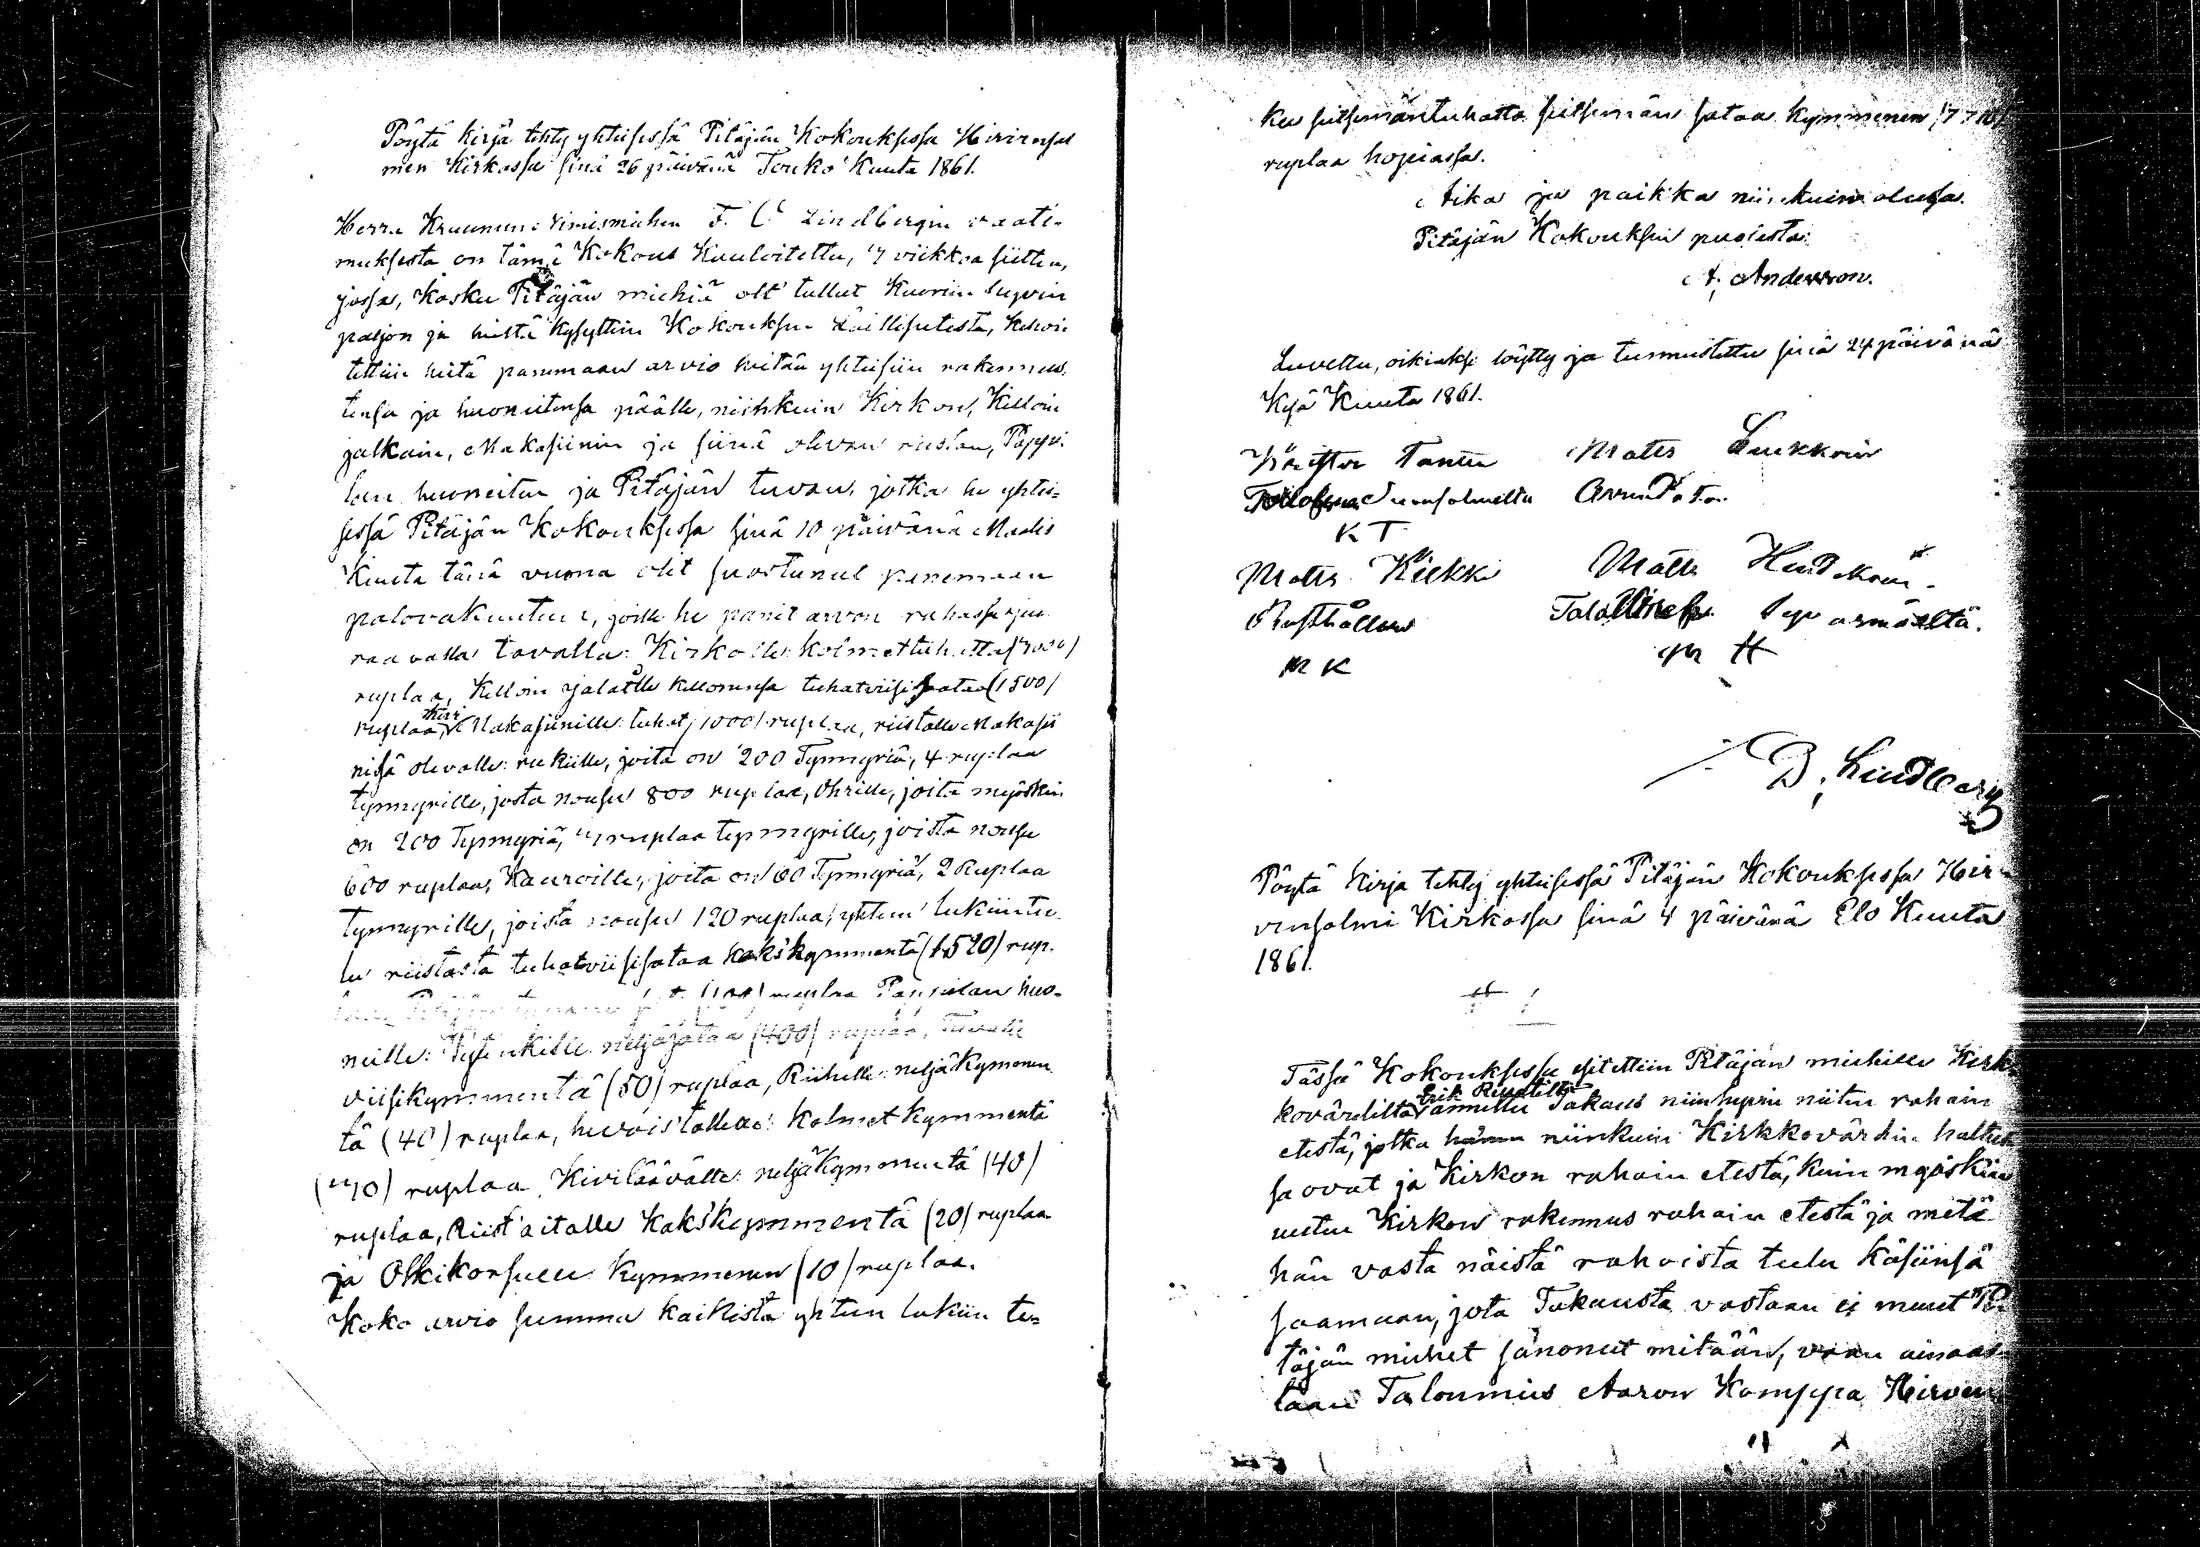 Pöytä Kirja tehty yhteisessä Pitäjän Kokouksessa Hirvensal
men Kirkossa sinä 26 päivänä Touko Kuuta 1861.
Herra Kruunun Nimismiehen F. C Lindbergin vaati-
muksesta on tämä Kokous Kuuloitettu, 7 viikkoa siitten,
jossa, koska Pitäjän miehiä olit tullut Kuoriin hyvin
paljon ja heiltä kysyttiin Kokouksen laillisutesta, kehoi-
tettiin heitä panemaan arvio heitän yhteisiin rakennus
tensa ja huoneitensa päälle, niinkuin Kirkon, Kelloin
jalkain, Makasiinin ja siinä olevan riistan, Pappi
lan huoneiten ja Pitäjän tuvan, jotka he yhtei-
sessä Pitäjän Kokouksessa sinä 10 päivänä Maalis
Kuuta tänä vuonna olit suostunut panemaan
palovakuuteen, joille he panit arvon rahassa
raavalla tavalla: Kirkolle kolmettuhatta (3000)
ruplaa, Kelloin jalalle kelloinensa tuhatviisisataa (1500)
ruplaa, Kivi Makasiinille: tuhat (1000) ruplaa, riistalle Makasii
nissa olevalle: rukiille, joita on 200 Tynnyriä, 4 ruplaa
tynnyrille, josta nousee 800 ruplaa, Ohrille, joita myöskin
on 200 Tynnyriä, 3 ruplaa tynnyrille, joista nousee
600 ruplaa, Kauroille, joita on 60 Tynnyriä, 2 Ruplaa
tynnyrille, joista nousee 120 ruplaa, yhteen lukiintu
lu riistasta tuhatviisisataa kakskymmentä (1,520) rup-
(100) ruplaa Pappilan huo-
neille: neljäsataa (400) ruplaa, Tuvalle
viisikymmentä (50) ruplaa, Riihelle neljäkymmen
tä (40) ruplaa, hevoistallille: kolmetkymmentä
(30) ruplaa, Kiviläävälle: neljäkymmentä (40)
ruplaa, Riist aitalle Kakskymmentä (20) ruplaa
ja Olkikorsuu Kymmenen (10) ruplaa.
Koko arvio summa kaikista yhteen lukiin te-
kee seitsemäntuhatta seitsemän sataa kymmenen (7710)
ruplaa hopiassa.
Aika ja paikka niinkuin olessa.
Pitäjän Kokouksen puolesta:
A. Andersson.
Luvettu, oikiaksi löytty ja tunnustettu sinä 24 päivänä
Kesä Kuuta 1861.
Matts Luukkoin
K T
Matts Kiekki Matts
Rusthållare
M K M H
D. Lindberg
Pöytä Kirja tehty yhteisessä Pitäjän Kokouksessa Hir-
vensalmi Kirkossa sinä 4 päivänä Elo Kuuta
1861.
§ 1
Tässä Kokouksessa esitettiin Pitäjän miehille Kirk
kovärdiltä Erik annettu Takaus niinhyvin niiten rahain
etestä, jotka hänen niinkuin Kirkkovärdin haltus
sa ovat ja Kirkon rahain etestä, kuin myöskin
uuten Kirkon rakennus rahain etestä ja mitä
hän vasta näistä rahoista tulee käsiinsä
saamaan, jota Takausta vastaan ei muut Pi-
täjän miehet sanonut mitään, vaan ainoas-
taan Talonmies Aaron Komppa Hirven